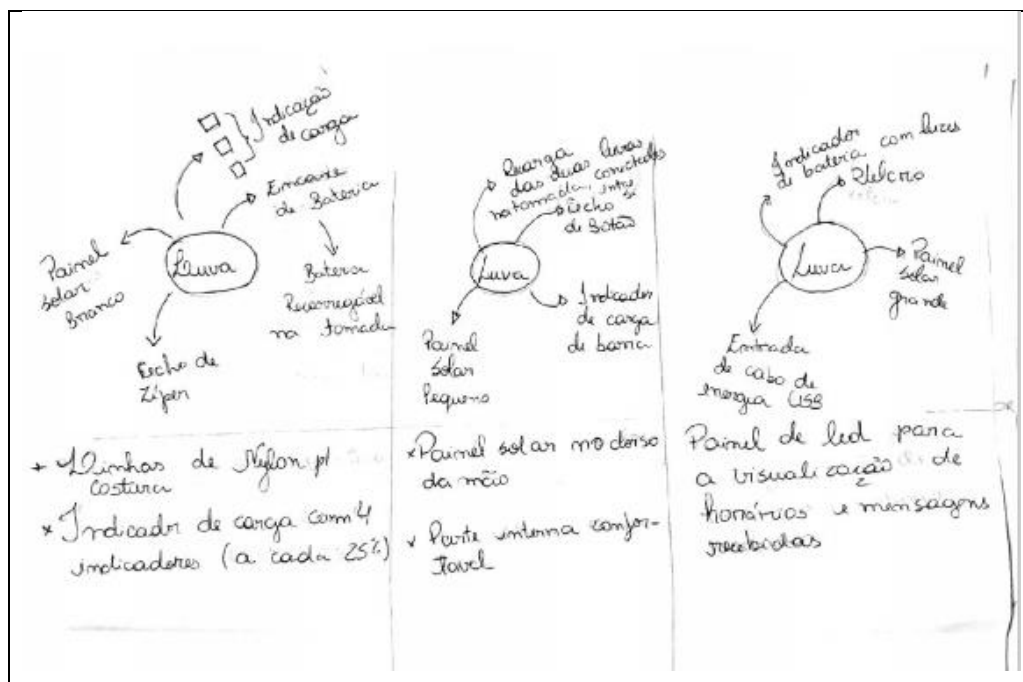 Indicação
de carga
Encaixe
de Bateria
Painel
solar
Branco
Luva
Bateria
Recarregável
na tomada
Fecho de
Zíper
* Linhas de Nylon p/
costura
* Indicador de carga com 4
indicadores (a cada 25%)
Recarga
das duas luvas
na tomada, conectadas
entre si
Fecho
de Botão
Luva
Indicador
de carga
de barra
Painel
Solar
Pequeno
* Painel solar no dorso
da mão
* Parte interna confor-
tavel
1
Indicador
de bateria com luzes
Velcro
Luva
Painel
solar
grande
Entrada
de cabo de
energia USB
Painel de led para
a visualização de
horários e mensagens
recebidas